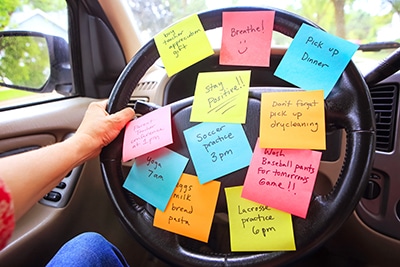 buy
teacher
appreciation
gift
Breathe!
Pick up
Dinner
Stay
Positive!!
Don't forget
pick up
drycleaning
Parent
Teacher
conference
3pm
Soccer
practice
3pm
Wash
Baseball pants
for tomorrow's
Game!!
Yoga
7am
eggs
milk
bread
pasta
Lacrosse
practice
6pm